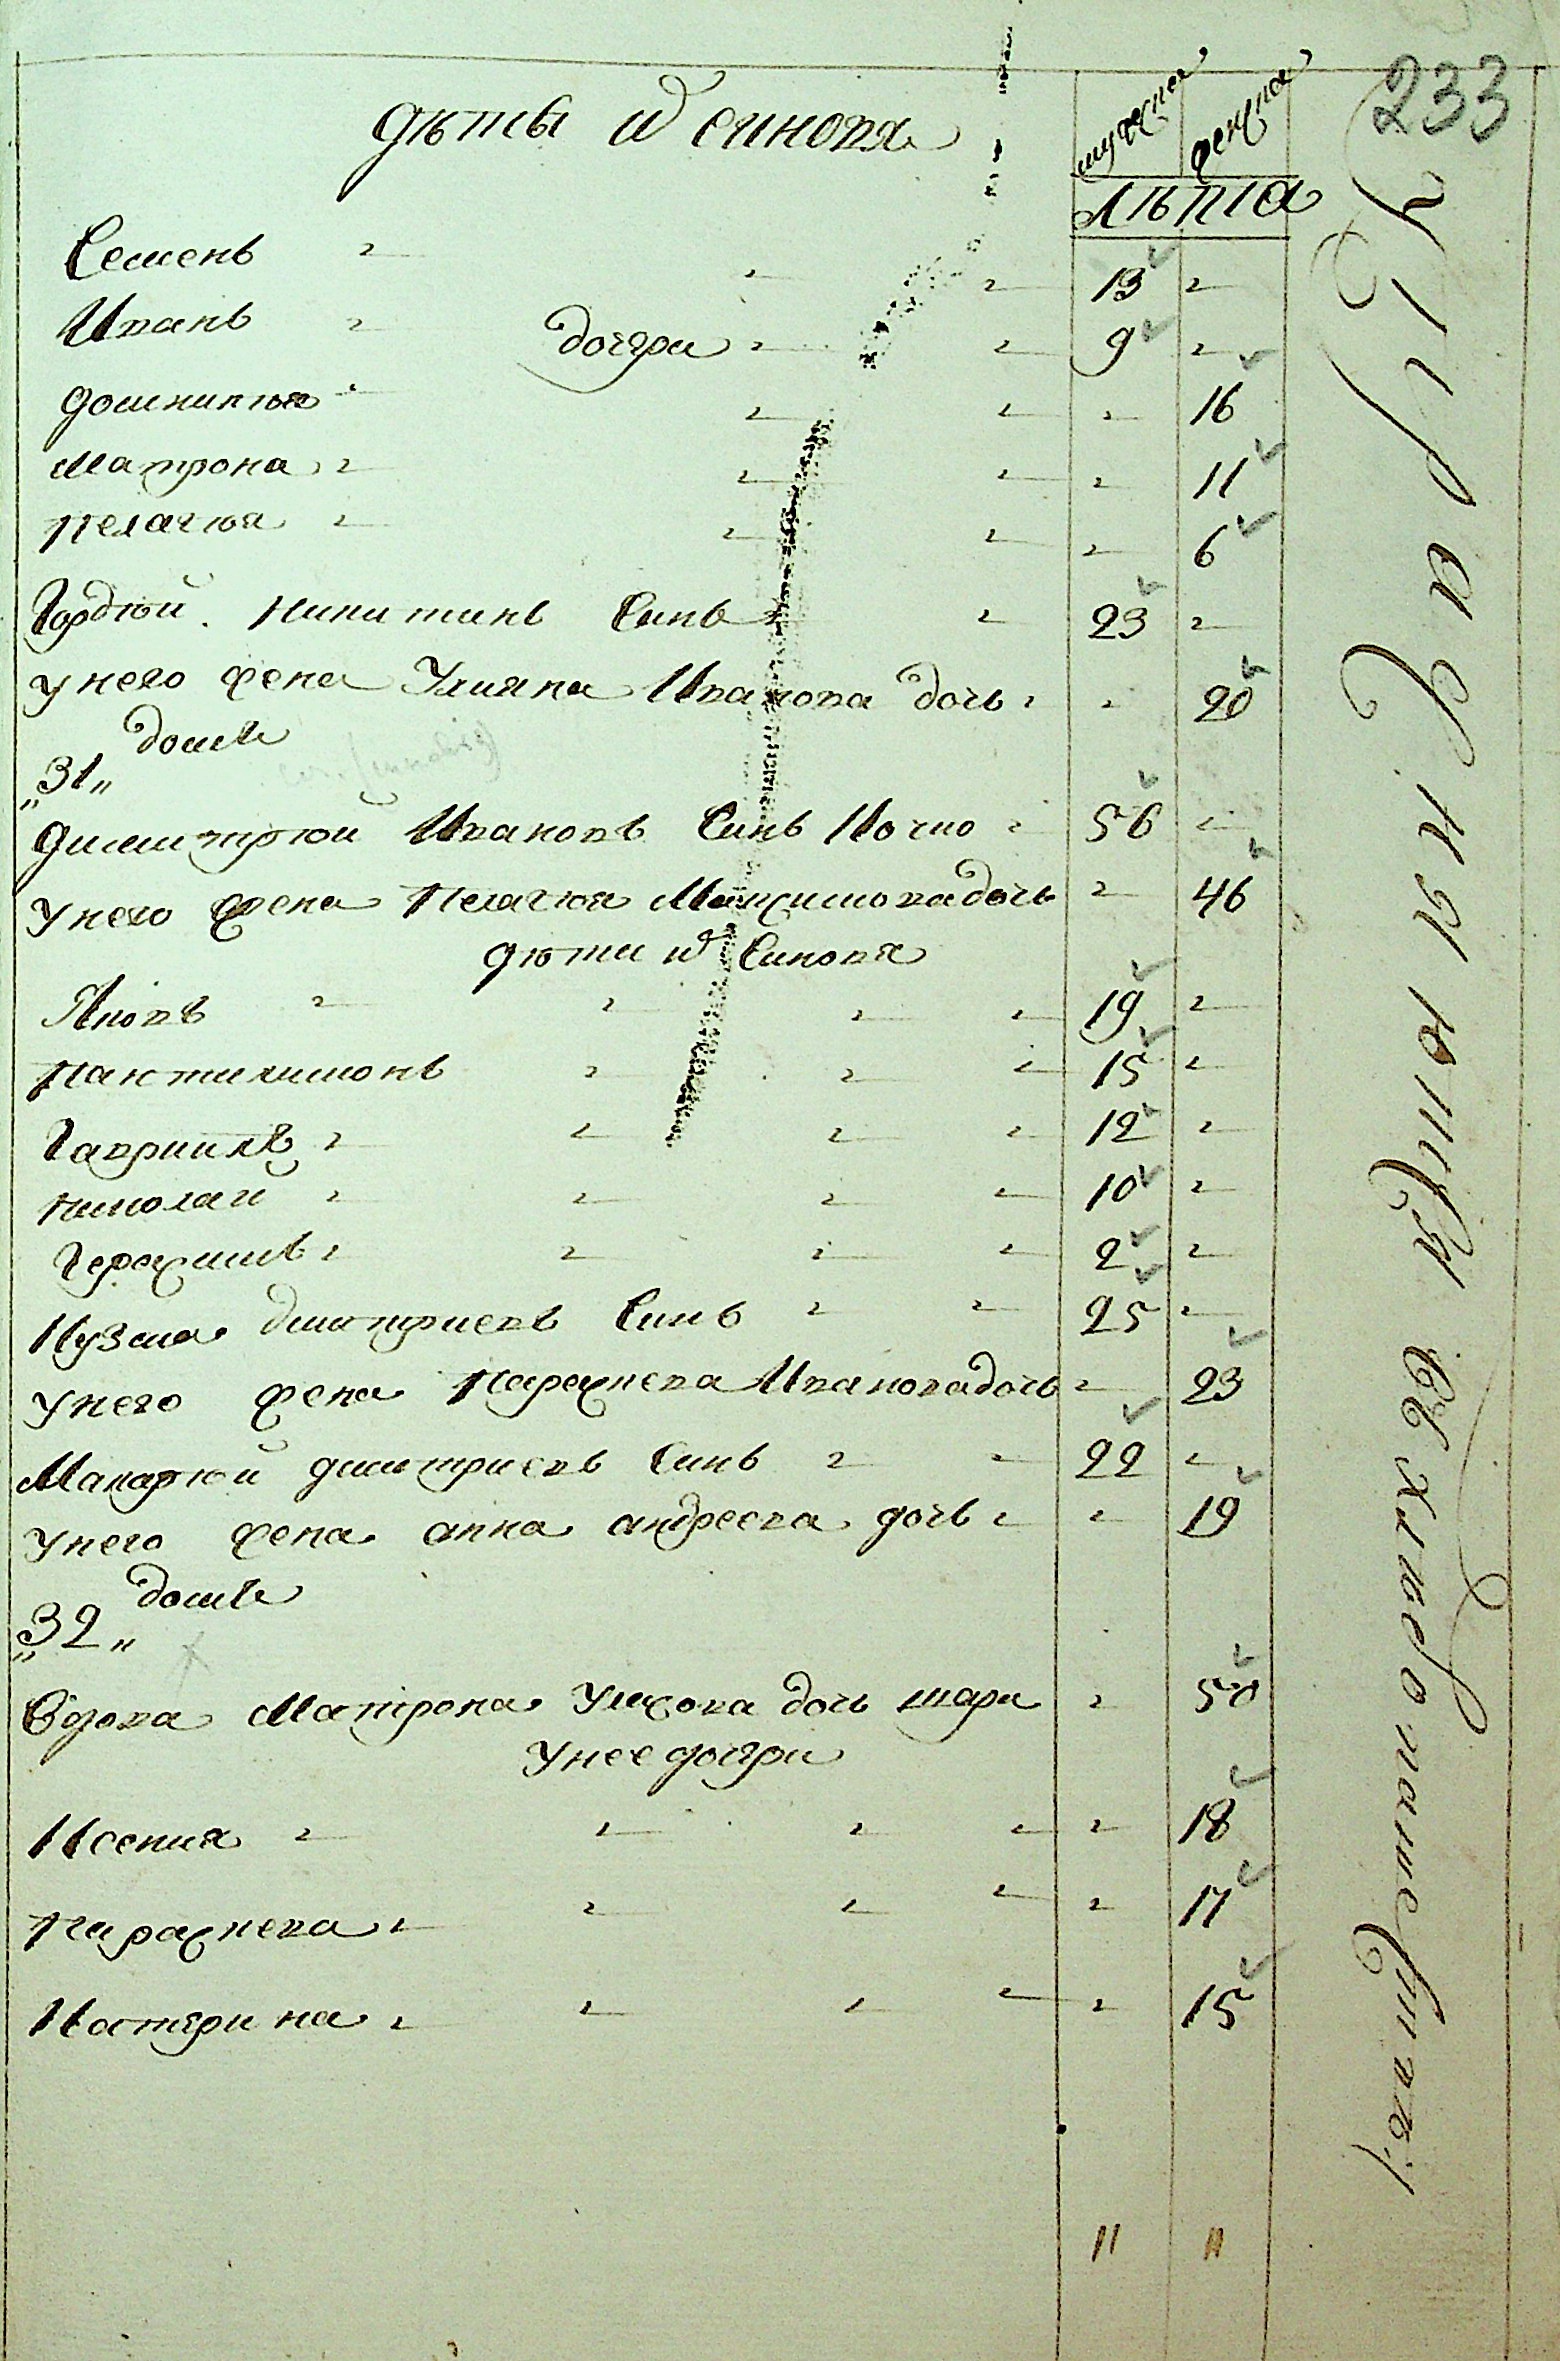 233
дѣти и синовя мужеска женска
лѣта
Семенъ 13
Иванъ 9
дочери
Домникия 16
Матрона 11
Пелагия 6
Гордий Никитинъ Синъ 23
у него жена Улияна Иванова дочь 20
домъ
„31„
Димитрий Ивановъ Синъ 56
у него жена Пелагия Максимова дочь 46
дѣти и Синовя
Яковъ 19
Пантилимонъ 15
Гавриилъ 12
Николай 10
Герасимъ 2
Кузма Дмитриевъ Синъ 25
у него жена Параскева Иванова дочь 23
Макарий Димитриевъ Синъ 22
у него жена анна андреева дочь 19
домъ
„32„
Вдова Матрона дочь 50
у нее дочери
Ксения 18
Параскева 17
Катерина 15
11 11